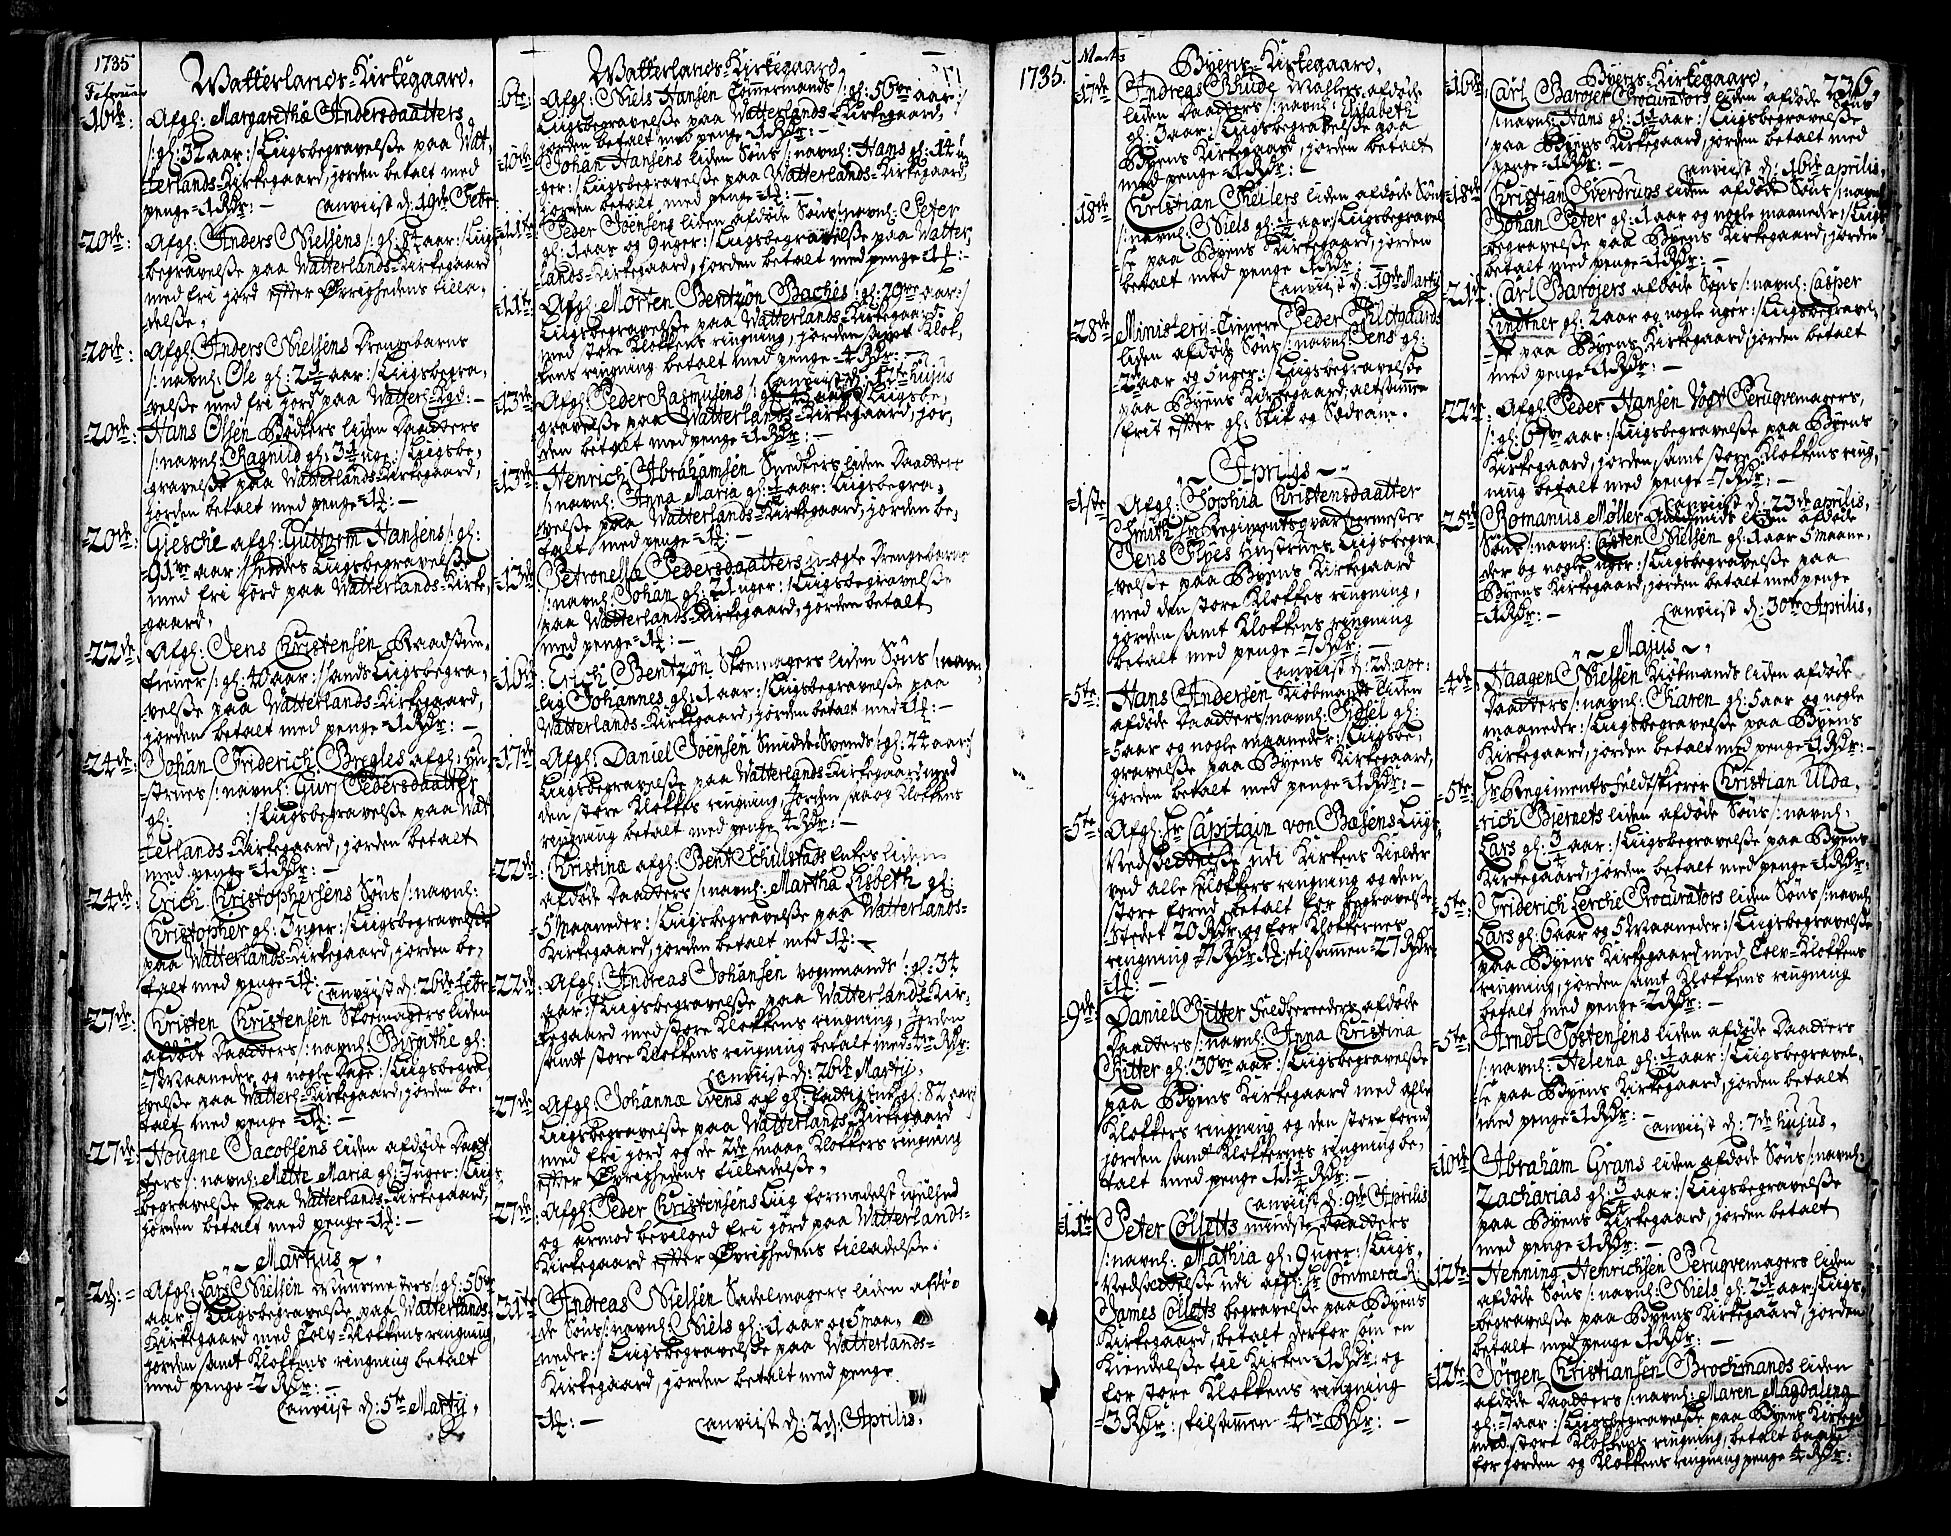 1735
Februar
Watterlands-Kirkegaard.
16de: Afgl: Margarethæ Andersdaatters
/: gl: 32 aar :/ Liigsbegravelße paa Wat-
terlands-Kirkegaard, jorden betalt med
penge =1 Rdr: — anviist d: 19de Febr
20de: Afgl: Anders Nielsens /: gl: aar :/ Liigs-
begravelße paa Watterlands-Kirkegaard
med fri jord effter Øvrighedens tilla-
delße.
20de: Afgl: Anders Nielsens Drengebarns
/: navnl: Ole gl: 2½ aar :/ Liigsbegra-
velße med fri jord paa Watterl-Kgd: —
20de: Hans Olsen Bødkers liden Daatters
/: navnl: Ragnild gl: 3½ uge :/ Liigsbe-
gravelße paa Watterlands-Kirkegaard,
jorden betalt med penge =1½: —
20de: Giesche afgl: Guttorm Hansens /: gl:
91ve aar :/ Liigsbegravelße
med fri jord paa Watterlands-Kirke-
gaard.
22de: Afgl: Jens Christensen Raadstue-
tiener /: gl: 40 aar :/ Liigsbegra-
velße paa Watterlands-Kirkegaard,
jorden betalt med penge =1 Rdr: —
24de: Johan Friderich Bregles afgl: Hu-
strues /: navnl: Guri Pedersdaatter
gl: :/ Liigsbegravelße paa Wat-
terlands-Kirkegaard, jorden betalt
med penge =1 Rdr: —
24de: Erich Christophersens Søns /: navnl:
Christopher gl: 3 uger :/ Liigsbegravelße
paa Watterlands-Kirkegaard, jorden be-
talt med penge =1½: — anviist d: 26de Febr
27de: Christen Christensen Skoemagers liden
afdøde Daatters /: navnl: Birgithe gl:
7 Maaneder og nogle Dage :/ Liigsbegra-
velße paa Watterl-Kirkegaard, jorden be-
talt med penge =1½: —
27de: Hougne Jacobsens liden afdøde Daat-
ters /: navnl: Mette Maria gl: 3 uger :/ Liigs-
begravelße paa Watterlands-Kirkegaard,
jorden betalt med penge =1½: —
Martius
2d: Afgl: Lars Nielsen Muurmesters /: gl: 56ve
aar :/ Liigsbegravelße paa Watterlands-
Kirkegaard med Tolv-Klokkens ringning,
jorden samt Klokkens ringning betalt
med penge =2 Rdr: —
anviist d: 5te Martij.
Watterlands-Kirkegaard.
6te: Afgl: Niels Hansen Tømermands /: gl: 56ve aar :/
Liigsbegravelße paa Watterlands-Kirkegaard,
jorden betalt med penge =1 Rdr: —
10de: Johan Hansens liden Søns /: navnl: Hans gl: 14 u-
ger :/ Liigsbegravelße paa Watterlands-Kirkegaard,
jorden betalt med penge =1½: —
11te: Peder Joensens liden afdøde Søns /: navnl: Peter
gl: 1 aar og 9 uger :/ Liigsbegravelße paa Watter-
lands-Kirkegaard, jorden betalt med penge =1½: —
11te: Afgl: Morten Bentzøn Baches /: gl: 70ve aar :/
Liigsbegravelße paa Watterlands-Kirkegaard
med store Klokkens ringning, jorden samt Klok-
kens ringning betalt med penge =4 Rdr: —
anviist d: 12te hujus
13de: Afgl: Peder Rasmusens /: gl: 43 aar :/ Liigsbe-
gravelße paa Watterlands-Kirkegaard, jor-
den betalt med penge =1 Rdr: —
13de: Henrich Abrahamsen Snedkers liden Daatters
/: navnl: Anna Maria gl: ½ aar :/ Liigsbegra-
velße paa Watterlands-Kirkegaard, jorden be-
talt med penge =1½: —
13de: Petronella Pedersdaatters uægte Drengebarns
/: navnl: Johan gl: 21 uger :/ Liigsbegravelße
paa Watterlands-Kirkegaard, jorden betalt
med penge =1½: —
16de: Erich Bentzøn Skoemagers liden Søns /: navn-
lig Johannes gl: 1 aar :/ Liigsbegravelße paa
Watterlands-Kirkegaard, jorden betalt med =1½: —
17de: Afgl: Daniel Joensen Smidde-Svends /: gl: 24 aar :/
Liigsbegravelße paa Watterlands-Kirkegaard med
den store Klokkes ringning, Jorden saa og Klokkens
ringning betalt med penge =4 Rdr: —
22de: Christinæ afgl: Bent Schulstads Enkes liden
afdøde Daatters /: navnl: Martha Lisbeth gl:
5 Maaneder :/ Liigsbegravelße paa Watterlands-
Kirkegaard, jorden betalt med =1½: —
22de: Afgl: Andreas Johansen vognmands /: gl: 34
aar :/ Liigsbegravelße paa Watterlands-Kir-
kegaard med store Klokkens ringning, Jorden
samt store Klokkens ringning betalt med =4re Rdr:
anviist d: 26de Martij.
27de: Afgl: Johannæ Evens af gl: Fattig Enke gl: 82 aar :/
Liigsbegravelße paa Watterlands-Kirkegaard
med fri jord og de 2de smaa Klokkers ringning
effter Øvrighedens tilladelße.
27de: Afgl: Peder Christensens Liig formedelst uselhed
og armod bevilged fri jord paa Watterlands-
Kirkegaard effter Øvrighedens tilladelße.
31te: Andreas Nielsen Sadelmagers liden afdø-
de Søns /: navnl: Niels gl: 1 aar og 5 maa-
neder :/ Liigsbegravelße paa Watterlands-
Kirkegaard, jorden betalt med penge
=1½: — anviist d: 2d: Aprilis.
1735. Marts
Byens-Kirkegaard.
17de Andreas Bulde Mahlers afdøde
liden Daatters /: navnl: Elisabeth
gl: 3 aar :/ Liigsbegravelße paa
Byens Kirkegaard, jorden betalt
med penge =1 Rdr: —
18de Christian Theilers liden afdøde Søns
/: navnl: Niels gl: ½ aar :/ Liigsbegravel-
ße paa Byens Kirkegaard, jorden
betalt med penge =1 Rdr: —
anviist d: 19de Martij
28de Ministerij-Tienere Peder Kilegaards
liden afdøde Søns /: navnl: Jens gl:
2½ aar og 5 uger :/ Liigsbegravelße
paa Byens Kirkegaard, altsammen
frit effter gl: Skik og Sædvane.
Aprilis
1ste Afgl: Sophia Christensdaatter
Smith Hr Regimentsqvarteermester
Jens Alpes Hustrues Liigsbegra-
velße paa Byens Kirkegaard
med den store Klokkes ringning,
jorden samt Klokkens ringning
betalt med penge =7 Rdr: —
anviist d: 2d: apr:
5te: Hans Andersen Kiøbmands liden
afdøde Daatters /: navnl: Sidsel gl:
5 aar og nogle maaneder :/ Liigsbe-
gravelße paa Byens Kirkegaard,
jorden betalt med penge =1 Rdr: —
5te: Afgl: Hr Capitain von Bæsens Liigs-
Nedsættelße udi Kirkens Kielder
ved alle Klokkers ringning og den
store forud, betalt for begravelße
Stedet 20 Rdr og for Klokkernes
ringning =7 Rdr 1½, tilsammen =27 Rdr
=1½: —
9de: Daniel Ritter Feldberreders afdøde
Daatters /: navnl: Anna Christina
Ritter gl: 30ve aar :/ Liigsbegravelße
paa Byens Kirkegaard med alle
Klokkers ringning og den store forud
jorden samt Klokkernes ringning be-
talt med penge =11½ Rdr: —
anviist d: 9de Aprilis
11te Peter Colletts mindste Daatters
/: navnl: Mathia gl: 9 uger :/ Liigs-
Nedsættelße udi afgl: Hr Commerce R:
James Colletts begravelße paa Byens
Kirkegaard, betalt derfor som en
Kiendelße til Kirken =1 Rdr, og
for store Klokkens ringning
=3 Rdr, tilsammen =4re Rdr: —
Byens-Kirkegaard. 236.
16de Carl Barojer Procurators liden afdøde Søns
/: navnl: Hans gl: 1½ aar :/ Liigsbegravelße
paa Byens Kirkegaard, jorden betalt med
penge =1 Rdr: — anviist d: 16de aprilis.
18de: Christian Sverdrups liden afdøde Søns /: navnl:
Johan Peter gl: 1 aar og nogle maaneder :/ Liigs-
begravelße paa Byens Kirkegaard, jorden
betalt med penge =1 Rdr: —
21de: Carl Barojers afdøde Søns /: navnl: Casper
Lindtner gl: 2 aar og nogle uger :/ Liigsbegravel-
ße paa Byens Kirkegaard, jorden betalt
med penge =1 Rdr: —
22de: Afgl: Peder Hansen Vogt Peruqvemagers,
/: gl: 67ve aar :/ Liigsbegravelße paa Byens
Kirkegaard, jorden samt store Klokkens ring-
ning betalt med penge =7 Rdr: —
anviist d: 23de aprilis.
25de Romanus Møller Guldsmids liden afdøde
Søns /: navnl: Carsten Nielsen gl: 1 aar 5 maane-
der og nogle uger :/ Liigsbegravelße paa
Byens Kirkegaard, jorden betalt med penge
=1 Rdr: — anviist d: 30te Aprilis.
Majus
4de: Haagen Nielsen Kiøbmands liden afdøde
Daatters /: navnl: Karen gl: 5 aar og nogle
maaneder :/ Liigsbegravelße paa Byens
Kirkegaard, jorden betalt med penge =1 Rdr: —
5te: Hr Regiments Feldtskierer Christian Ulda-
rich Biernets liden afdøde Søns /: navnl:
Lars gl: ¾ aar :/ Liigsbegravelße paa Byens
Kirkegaard, jorden betalt med penge =1 Rdr:
5te: Friderich Lerche Procurators liden Søns /: navnl:
Lars gl: 6 aar og 5 Maaneder :/ Liigsbegravelße
paa Byens Kirkegaard med Tolv-Klokkens
ringning, jorden samt Klokkens ringning
betalt med penge =2 Rdr: —
5te: Arndt Tostensens liden afdøde Daatters
/: navnl: Helena gl: ½ aar :/ Liigsbegravel-
ße paa Byens Kirkegaard, jorden betalt
med penge =1 Rdr: — anviist d: 7de hujus.
10de Abraham Grans liden afdøde Søns /: navnl:
Zacharias gl: ¾ aar :/ Liigsbegravelße
paa Byens Kirkegaard, jorden betalt
med penge =1 Rdr: —
12te Henning Henrichsen Peruqvemagers liden
afdøde Søns /: navnl: Niels gl: 2½ aar :/ Liigs-
begravelße paa Byens Kirkegaard, jorden
betalt med penge =1 Rdr: —
12te Jørgen Christiansen Brochmands liden
afdøde Daatters /: navnl: Maren Magdalena
gl: 7 aar :/ Liigsbegravelße paa Byens Kirkegd
med store Klokkens ringning, betalt baade
for jorden og Klokkens ringning penge =4 Rdr: